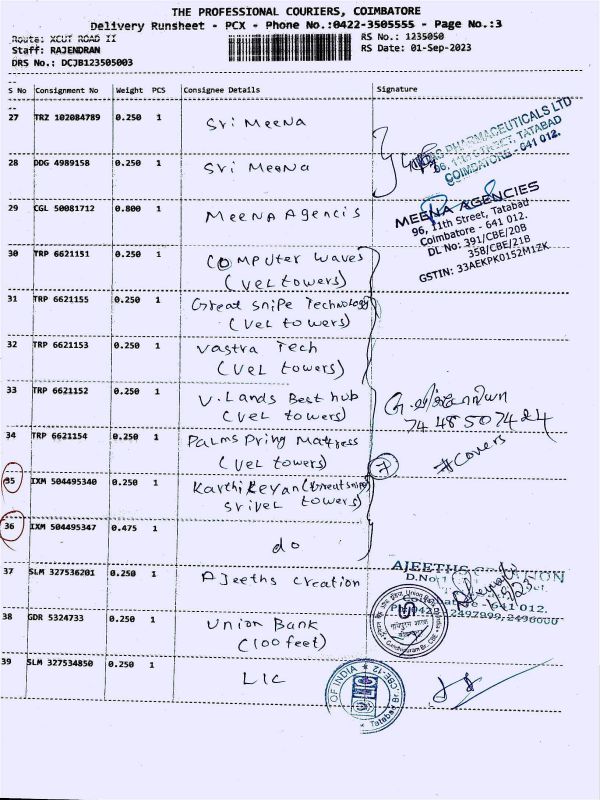 THE PROFESSIONAL COURIERS, COIMBATORE
Delivery Runsheet - PCX - Phone No.:0422-3505555 - Page No.:3
Route: XCUT ROAD II
RS No.: 1235050
Staff: RAJENDRAN
RS Date: 01-Sep-2023
DRS No.: DCJB123505003
S No Consignment No Weight PCS Consignee Details Signature
27 TRZ 102084789 0.250 1 Sri Meena
PHARMACEUTICALS LTD
96, 11th STREET, TATABAD
COIMBATORE - 641 012.
28 DDG 4989158 0.250 1 Sri Meena
29 CGL 50081712 0.800 1 Meena Agencis
MEENA AGENCIES
96, 11th Street, Tatabad
Coimbatore - 641 012.
DL No: 391/CBE/20B
358/CBE/21B
GSTIN: 33AEKPK0152M1ZK
30 TRP 6621151 0.250 1 Computer Waves
(Vel towers)
31 TRP 6621155 0.250 1 Great Snipe Technology
(Vel towers)
32 TRP 6621153 0.250 1 Vastra Tech
(Vel towers)
33 TRP 6621152 0.250 1 V. Lands Best hub
(Vel towers)
74 48 507424
34 TRP 6621154 0.250 1 Palms Pring Mattress
(Vel towers)
7
#Covers
35 IXM 504495340 0.250 1 Karthikeyan (Great Snipe)
Srivel towers
36 IXM 504495347 0.475 1 do
37 SLM 327536201 0.250 1 Ajeeths Creation
AJEETHS
D.No
641 012.
2497999, 2496000
38 GDR 5324733 0.250 1 Union Bank
(100 feet)
39 SLM 327534850 0.250 1 LIC
OF INDIA ★ CBE-12.
★ Tatabad Br.